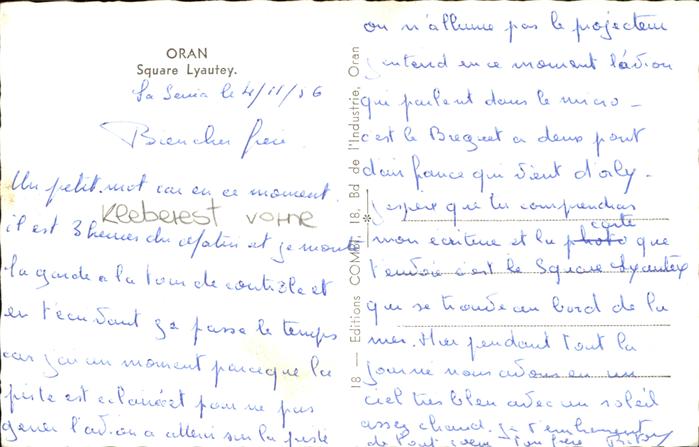 ORAN
Square Lyautey.
La Senia le 4/11/56
Bien cher frère
Un petit mot car en ce moment
Kleberest vorne
il est 3 heures du matin et je monte
la garde a la tour de contrôle et
en t'écrivant ça passe le temps
car j'ai un moment parceque la
piste est eclairée et pour ne pas
gener l'avion a atterir sur la piste
on n'allume pas le projecteur
j'entend en ce moment l'avion
qui parlent dans le micro -
c'est le Breguet a deux pont
d'air france qui vient d'orly.
j'espere que tu comprendras
mon ecriture et la photo carte que
t'envoie c'est le Square Lyautey
qui se trouve au bord de la
mer. Hier pendant tout la
journe nous avons eu un
ciel tres bleu avec un soleil
assez chaud. je t'embrasse
de tout coeur Ton frère
18 — Editions COMBI, 18, Bd de l'Industrie, Oran